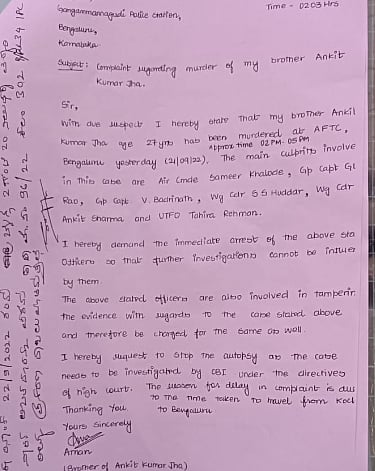 Gangammanagudi Police Station,
Time - 0203 Hrs
Bengaluru,
Karnataka
Subject: Complaint regarding murder of my brother Ankit
Kumar Jha.
Sir,
With due respect I hereby state that my brother Ankit
Kumar Jha age 27yrs has been murdered at AFTC,
Approx time 02PM-05PM
Bengaluru yesterday (21/09/22). The main culprits involve
in this case are Air Cmde Sameer Khalode, Gp Capt GL
Rao, Gp Capt. V. Badrinath, Wg Cdr SS Huddar, Wg Cdr
Ankit Sharma and UTFO Tahira Rehman.
I hereby demand the immediate arrest of the above sta
Officers so that further investigations cannot be influer
by them.
The above stated officers are also involved in tamperin
the evidence with regards to the case stated above
and therefore be charged for the same as well.
I hereby request to stop the autopsy as the case
needs to be investigated by CBI under the directives
of high court. The reason for delay in complaint is due
to the time taken to travel from Kocl
Thanking You
to Bengaluru
Yours Sincerely
Aman
(Brother of Ankit Kumar Jha)